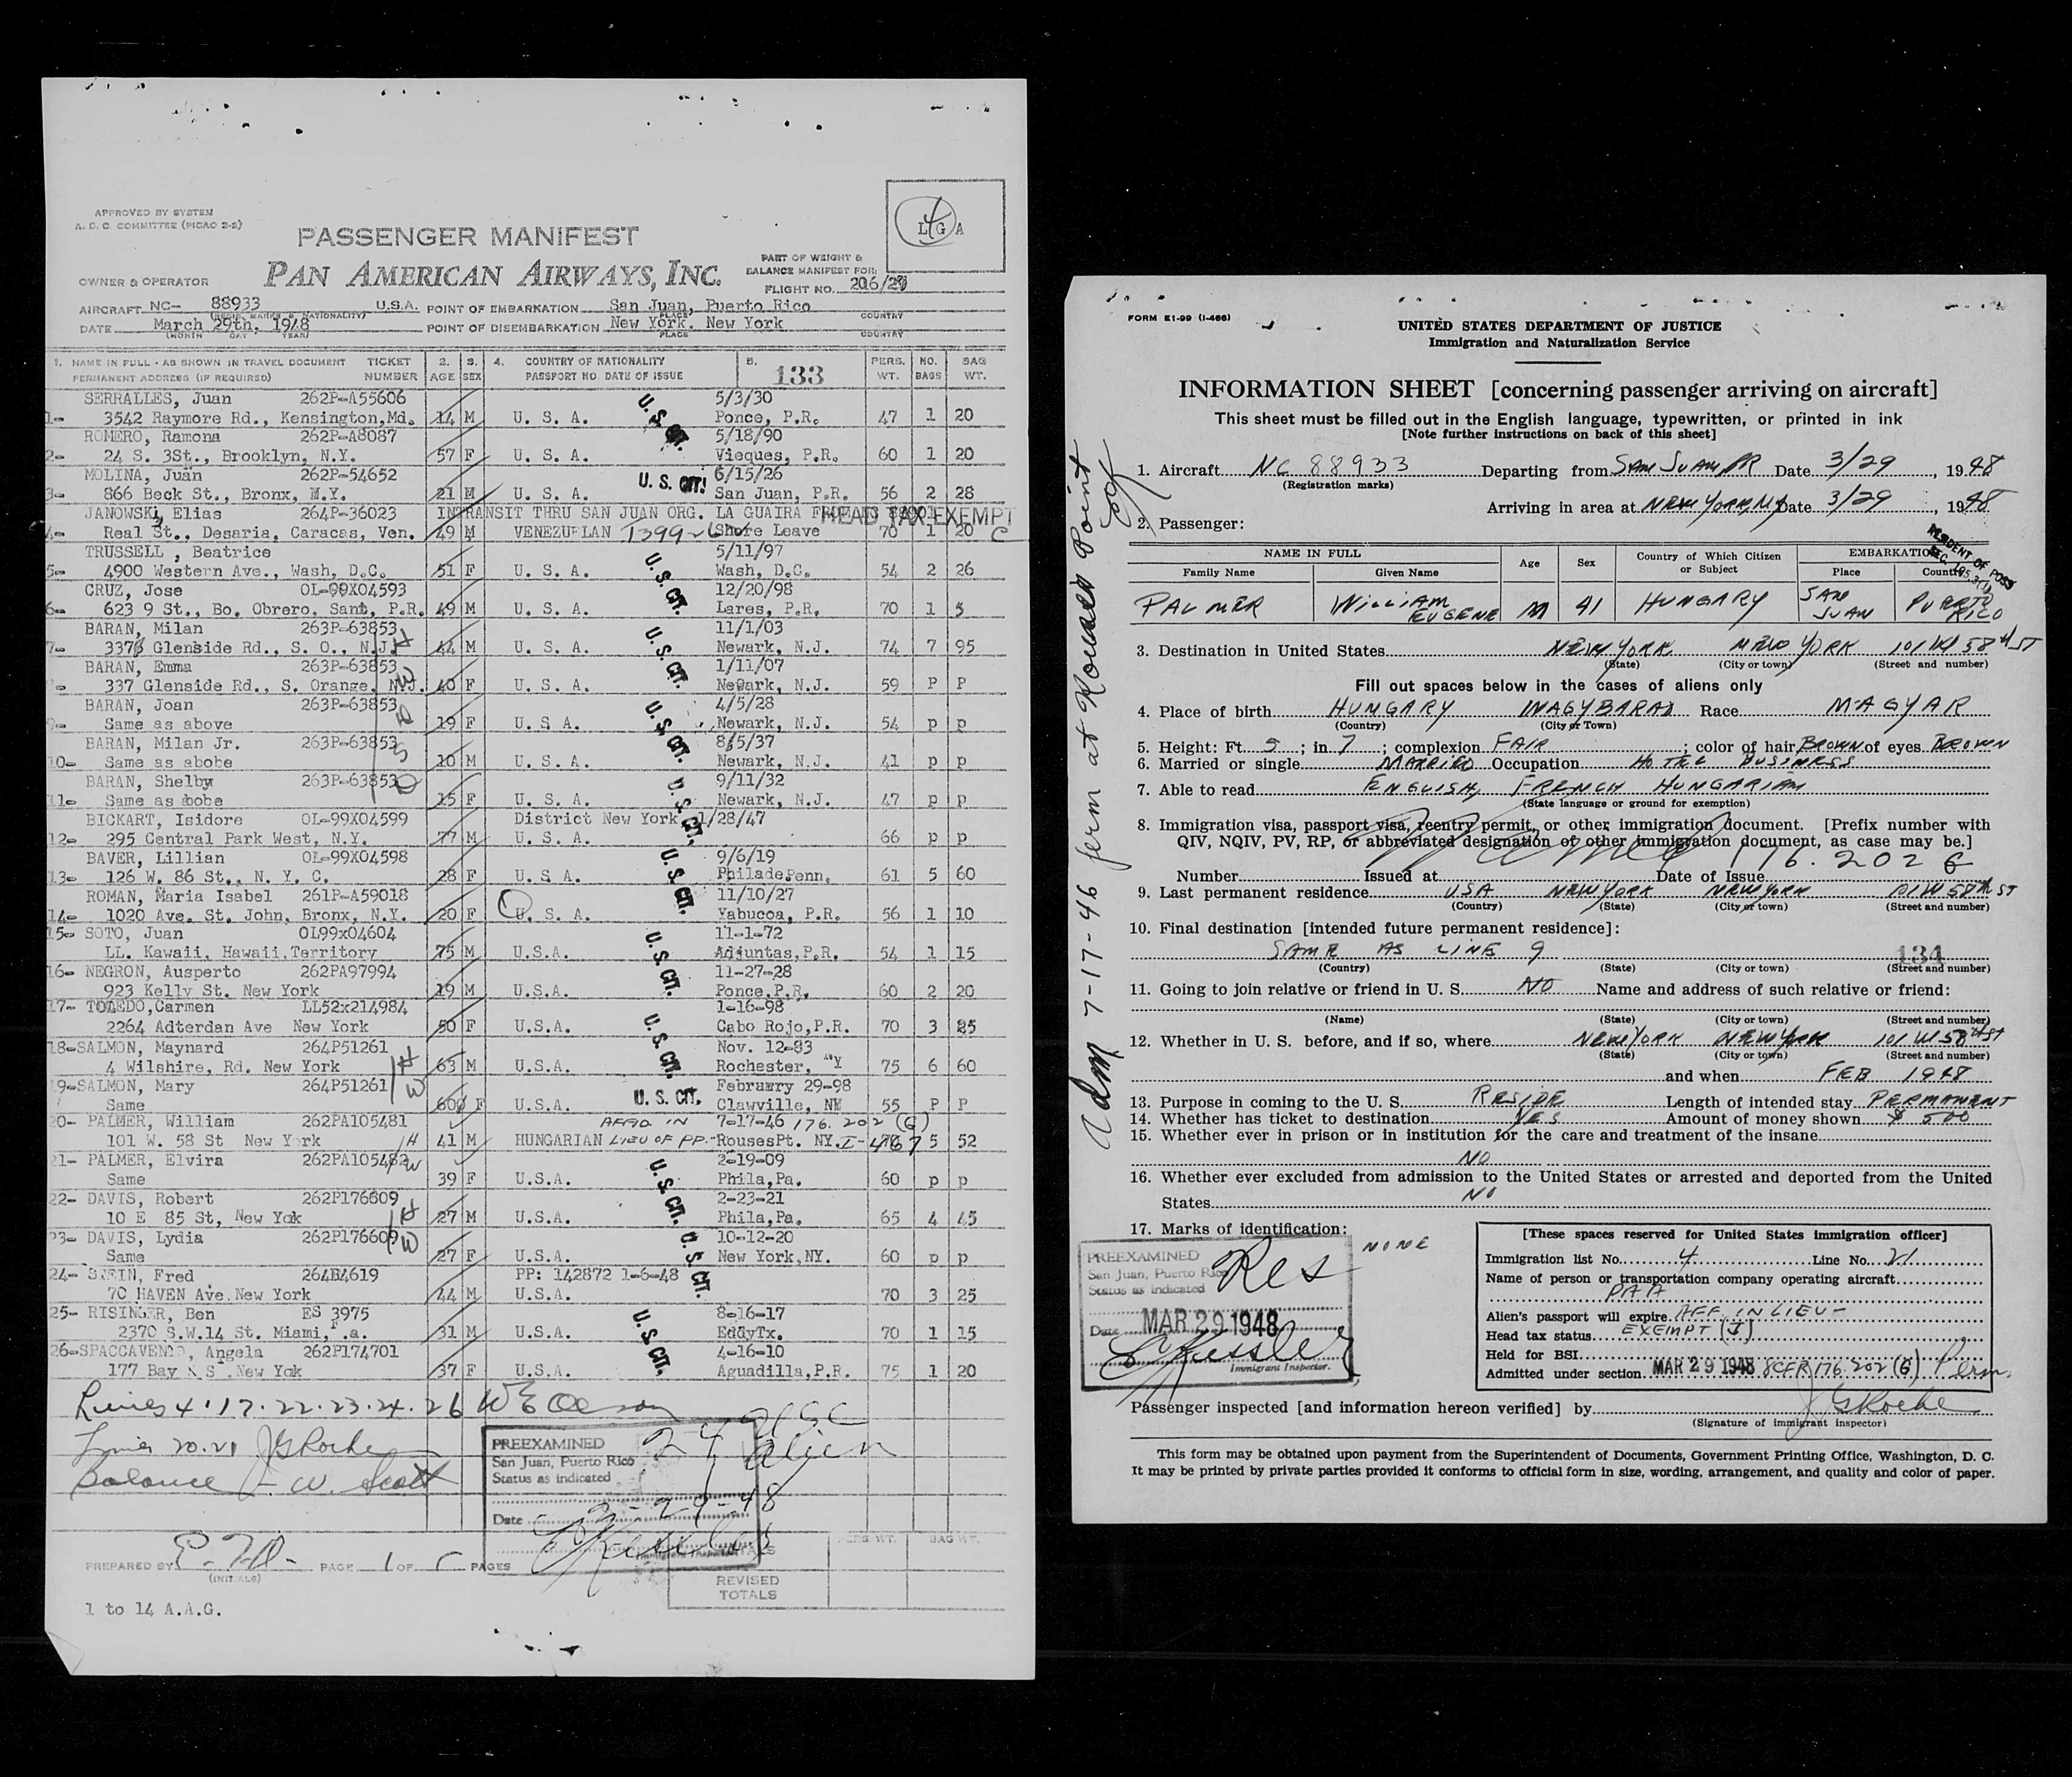 APPROVED BY SYSTEM
A. D. C. COMMITTEE (PICAO 3-2)
L G A
4
PASSENGER MANIFEST
PAN AMERICAN AIRWAYS, INC.
OWNER & OPERATOR
PART OF WEIGHT &
BALANCE MANIFEST FOR:
FLIGHT NO. 206/29
AIRCRAFT NC- 88933 U.S.A. POINT OF EMBARKATION San Juan, Puerto Rico
(REGIS. MARKS & NATIONALITY) PLACE COUNTRY
DATE March 29th, 1948 POINT OF DISEMBARKATION New York. New York
(MONTH DAY YEAR) PLACE COUNTRY
1. NAME IN FULL - AS SHOWN IN TRAVEL DOCUMENT TICKET 2. 3. 4. COUNTRY OF NATIONALITY 5. 133 PERS. NO. BAG
PERMANENT ADDRESS (IF REQUIRED) NUMBER AGE SEX PASSPORT NO. DATE OF ISSUE WT. BAGS WT.
SERRALLES, Juan 262P-A55606 5/3/30
1- 3542 Raymore Rd., Kensington,Md. 14 M U. S. A. U. S. CIT. Ponce, P.R. 47 1 20
ROMERO, Ramona 262P-A8087 5/18/90
2- 24 S. 3St., Brooklyn, N.Y. 57 F U. S. A. Vieques, P.R. 60 1 20
MOLINA, Juan 262P-54652 6/15/26
3- 866 Beck St., Bronx, N.Y. 21 M U. S. A. U. S. CIT. San Juan, P.R. 56 2 28
JANOWSKI, Elias 264P-36023 INTRANSIT THRU SAN JUAN ORG. LA GUAIRA HEAD TAX EXEMPT
4- Real St., Desaria, Caracas, Ven. 49 M VENEZUELAN I399- Shore Leave 70 1 20 C
TRUSSELL , Beatrice 5/11/97
5- 4900 Western Ave., Wash, D.C. 51 F U. S. A. U. S. CIT. Wash, D.C. 54 2 26
CRUZ, Jose OL-99X04593 12/20/98
6- 623 9 St., Bo. Obrero, Sant, P.R. 49 M U. S. A. Lares, P.R. 70 1 5
BARAN, Milan 263P-63853 11/1/03
7- 337 Glenside Rd., S. O., N.J. 44 M U. S. A. U. S. CIT. Newark, N.J. 74 7 95
BARAN, Emma 263P-63853 1/11/07
- 337 Glenside Rd., S. Orange, N.J. 40 F U. S. A. Newark, N.J. 59 P P
BARAN, Joan 263P-63853 4/5/28
9- Same as above 19 F U. S A. U. S. CIT. Newark, N.J. 54 p p
BARAN, Milan Jr. 263P-63853 8/5/37
10- Same as abobe 10 M U. S. A. Newark, N.J. 41 p p
BARAN, Shelby 263P-63853 9/11/32
11- Same as bobe 15 F U. S. A. U. S. CIT. Newark, N.J. 47 p p
BICKART, Isidore OL-99X04599 District New York 1/28/47
12- 295 Central Park West, N.Y. 77 M U. S. A. 66 p p
BAVER, Lillian OL-99X04598 9/6/19
13- 126 W. 86 St., N. Y. C. 28 F U. S A. U. S. CIT. Philade.Penn. 61 5 60
ROMAN, Maria Isabel 261P-A59018 11/10/27
14- 1020 Ave. St. John, Bronx, N.Y. 20 F U. S. A. Yabucoa, P.R. 56 1 10
15- SOTO, Juan OL99x04604 11-1-72
LL. Kawaii, Hawaii,Territory 75 M U.S.A. U. S. CIT. Adjuntas,P.R. 54 1 15
16- NEGRON, Ausperto 262PA97994 11-27-28
923 Kelly St. New York 19 M U.S.A. Ponce,P.R. 60 2 20
17- TOLEDO,Carmen LL52x214984 1-16-98
2264 Adterdan Ave New York 50 F U.S.A. U. S. CIT. Cabo Rojo,P.R. 70 3 25
18-SALMON, Maynard 264P51261 Nov. 12-83
4 Wilshire, Rd. New York H 63 M U.S.A. Rochester, NY 75 6 60
19-SALMON, Mary 264P51261 W February 29-98
Same 60 F U.S.A. U. S. CIT. Clawville, NY 55 P P
20- PALMER, William 262PA105481 AFFAD IN 7-17-46 176.202 (G)
101 W. 58 St New York H 41 M HUNGARIAN LIEU OF PP.- RousesPt. NY. I-467 5 52
21- PALMER, Elvira 262PA105482 W 2-19-09
Same 39 F U.S.A. U. S. CIT. Phila,Pa. 60 p p
22- DAVIS, Robert 262P176609 2-23-21
10 E 85 St, New Yok H 27 M U.S.A. Phila,Pa. 65 4 45
23- DAVIS, Lydia 262P176609 W 10-12-20
Same 27 F U.S.A. U. S. CIT. New York,NY. 60 p p
24- Fred 264B4619 PP: 142872 1-6-48
70 HAVEN Ave.New York 44 M U.S.A. 70 3 25
25- RISINGER, Ben ES 3975 8-16-17
2370 S.W.14 St. Miami, 31 M U.S.A. U. S. CIT. EddyTx. 70 1 15
26-SPACCAVENTO, Angela 262P174701 4-16-10
177 Bay S .New Yok 37 F U.S.A. Aguadilla,P.R. 75 1 20
Lines 4.17.22.23.24.26
Lines 20.21 J G Roche
Balance J. W. Scott
24 USC
1 alien
PREEXAMINED
San Juan, Puerto Rico
Status as indicated
Date 3-29-48
PREPARED BY PAGE 1 OF PAGES
(INITIALS)
TOTALS PERS WT. BAG WT.
REVISED
TOTALS
1 to 14 A.A.G.
FORM E1-99 (I-466)
UNITED STATES DEPARTMENT OF JUSTICE
Immigration and Naturalization Service
INFORMATION SHEET [concerning passenger arriving on aircraft]
This sheet must be filled out in the English language, typewritten, or printed in ink
[Note further instructions on back of this sheet]
1. Aircraft NC 88933 Departing from SAN JUAN PR Date 3/29, 1948
(Registration marks)
Arriving in area at NEW YORK, NY Date 3/29, 1948
2. Passenger:
RESIDENT OF POSS
NAME IN FULL Age Sex Country of Which Citizen or Subject EMBARKATION
Family Name Given Name Place Country
PALMER WILLIAM EUGENE M 41 HUNGARY SAN JUAN PUERTO RICO
3. Destination in United States NEW YORK NEW YORK 101 W 58th ST
(State) (City or town) (Street and number)
Fill out spaces below in the cases of aliens only
4. Place of birth HUNGARY Race MAGYAR
(Country) (City or Town)
5. Height: Ft. 5; in 7; complexion FAIR; color of hair BROWN of eyes BROWN
6. Married or single MARRIED Occupation HOTEL BUSINESS
7. Able to read ENGLISH, FRENCH HUNGARIAN
(State language or ground for exemption)
8. Immigration visa, passport visa, reentry permit, or other immigration document. [Prefix number with
QIV, NQIV, PV, RP, or abbreviated designation of other immigration document, as case may be.]
176.202 G
Number Issued at Date of Issue
9. Last permanent residence USA NEW YORK NEW YORK 101 W 58th ST
(Country) (State) (City or town) (Street and number)
10. Final destination [intended future permanent residence]:
SAME AS LINE 9 134
(Country) (State) (City or town) (Street and number)
11. Going to join relative or friend in U. S. NO Name and address of such relative or friend:
(Name) (State) (City or town) (Street and number)
12. Whether in U. S. before, and if so, where NEW YORK NEW YORK 101 W 58th ST
(State) (City or town) (Street and number)
and when FEB 1948
13. Purpose in coming to the U. S. RESIDE Length of intended stay PERMANENT
14. Whether has ticket to destination YES Amount of money shown $ 500
15. Whether ever in prison or in institution for the care and treatment of the insane
NO
16. Whether ever excluded from admission to the United States or arrested and deported from the United
States NO
17. Marks of identification:
NONE
PREEXAMINED
San Juan, Puerto Rico
Status as indicated
Res
Date MAR 29 1948
Immigrant Inspector.
[These spaces reserved for United States immigration officer]
Immigration list No. 4 Line No. 21
Name of person or transportation company operating aircraft
PAA
Alien's passport will expire AFF. IN LIEU-
Head tax status EXEMPT (J)
Held for BSI
Admitted under section MAR 29 1948 8CFR 176.202 (G) Perm.
Passenger inspected [and information hereon verified] by J G Roche
(Signature of immigrant inspector)
This form may be obtained upon payment from the Superintendent of Documents, Government Printing Office, Washington, D. C.
It may be printed by private parties provided it conforms to official form in size, wording, arrangement, and quality and color of paper.
Adm 7-17-46 perm at Rouses Point